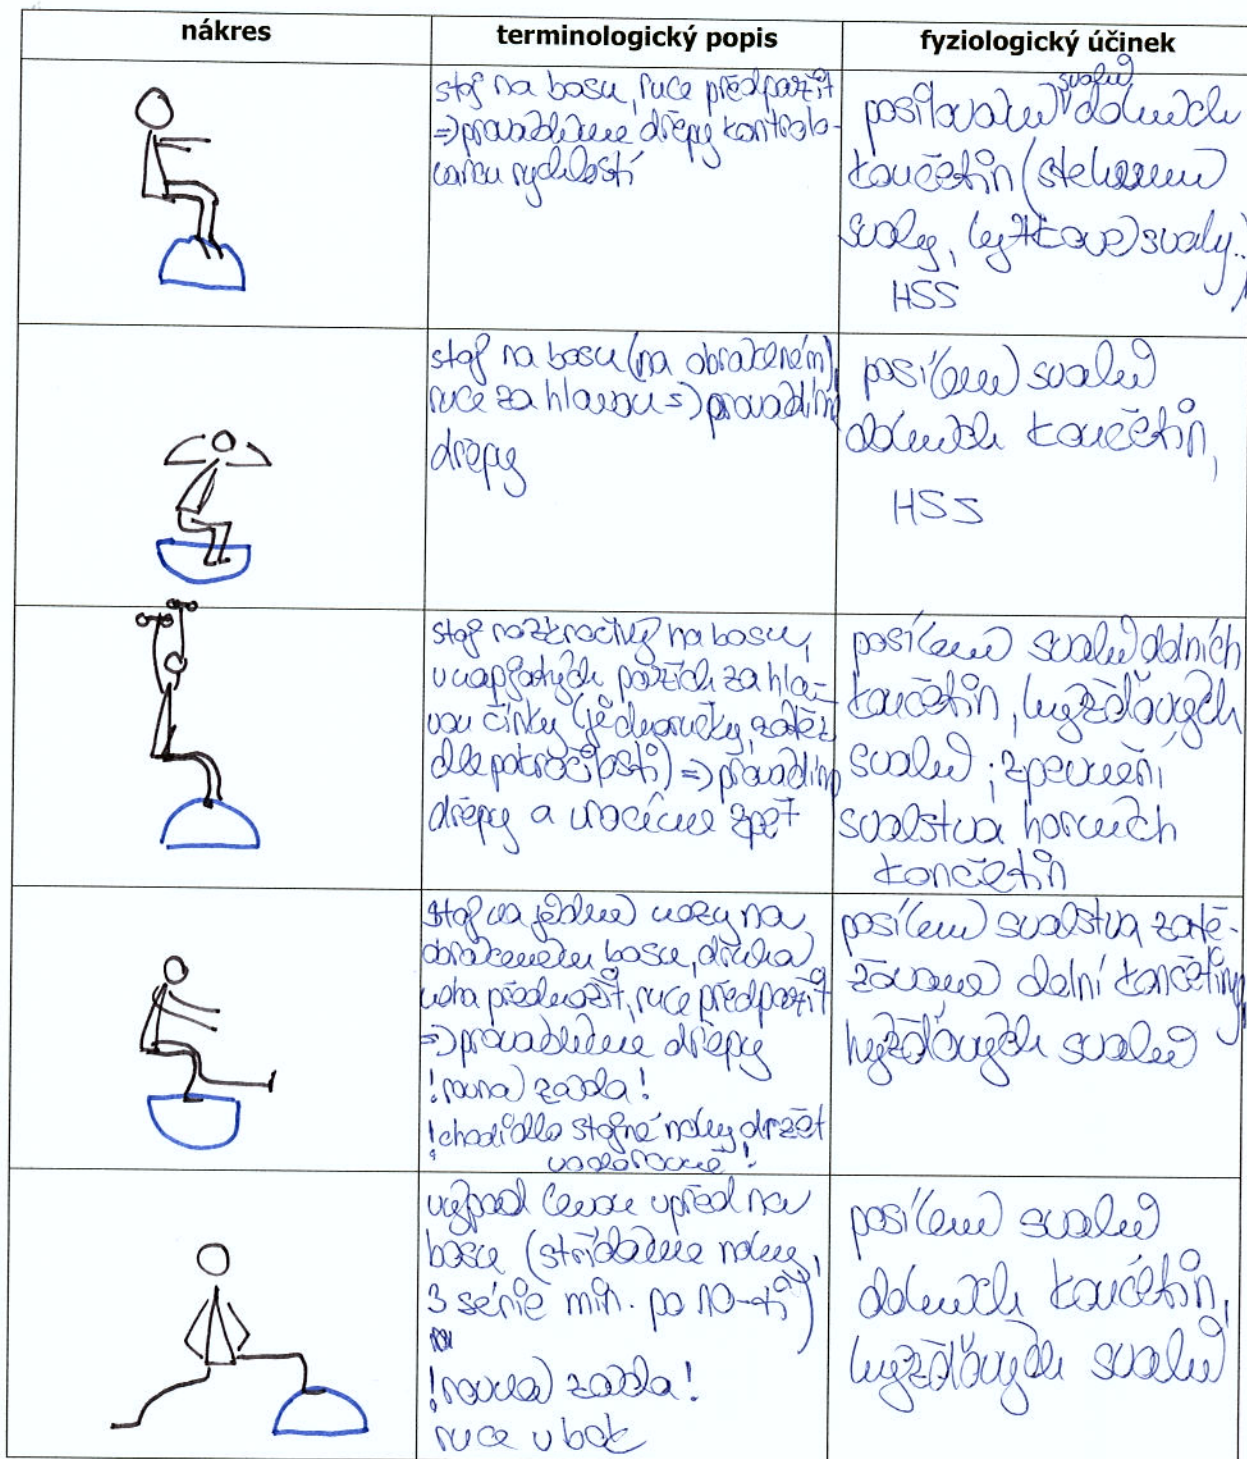 nákres
terminologický popis
fyziologický účinek
stoj na bosu, ruce předpažit
=> provádíme dřepy kontrolo-
vanou rychlostí
svalů
posilování dolních
končetin (stehenní
svaly, lýtkové svaly..)
HSS
stoj na bosu (na obráceném),
ruce za hlavou => provádím
dřepy
posílení svalů
dolních končetin,
HSS
stoj rozkročný na bosu,
v napjatých pažích za hla-
vou činky (jednoručky, zátěž
dle pokročilosti) => provádím
dřepy a vracíme zpět
posílení svalů dolních
končetin, hýžďových
svalů; zpevnění
svalstva horních
končetin
stoj na jedné nozy na
obráceném bosu, druhá
noha přednožit, ruce předpažit
=> provádíme dřepy
! rovná záda !
! chodidlo stojné nohy držet
vodorovně !
posílení svalstva zatě-
žované dolní končetiny,
hýžďových svalů
výpad levou vpřed na
bosu (střídáme nohy,
3 série min. po 10-ti)
! rovná záda !
ruce v bok
posílení svalů
dolních končetin,
hýžďových svalů